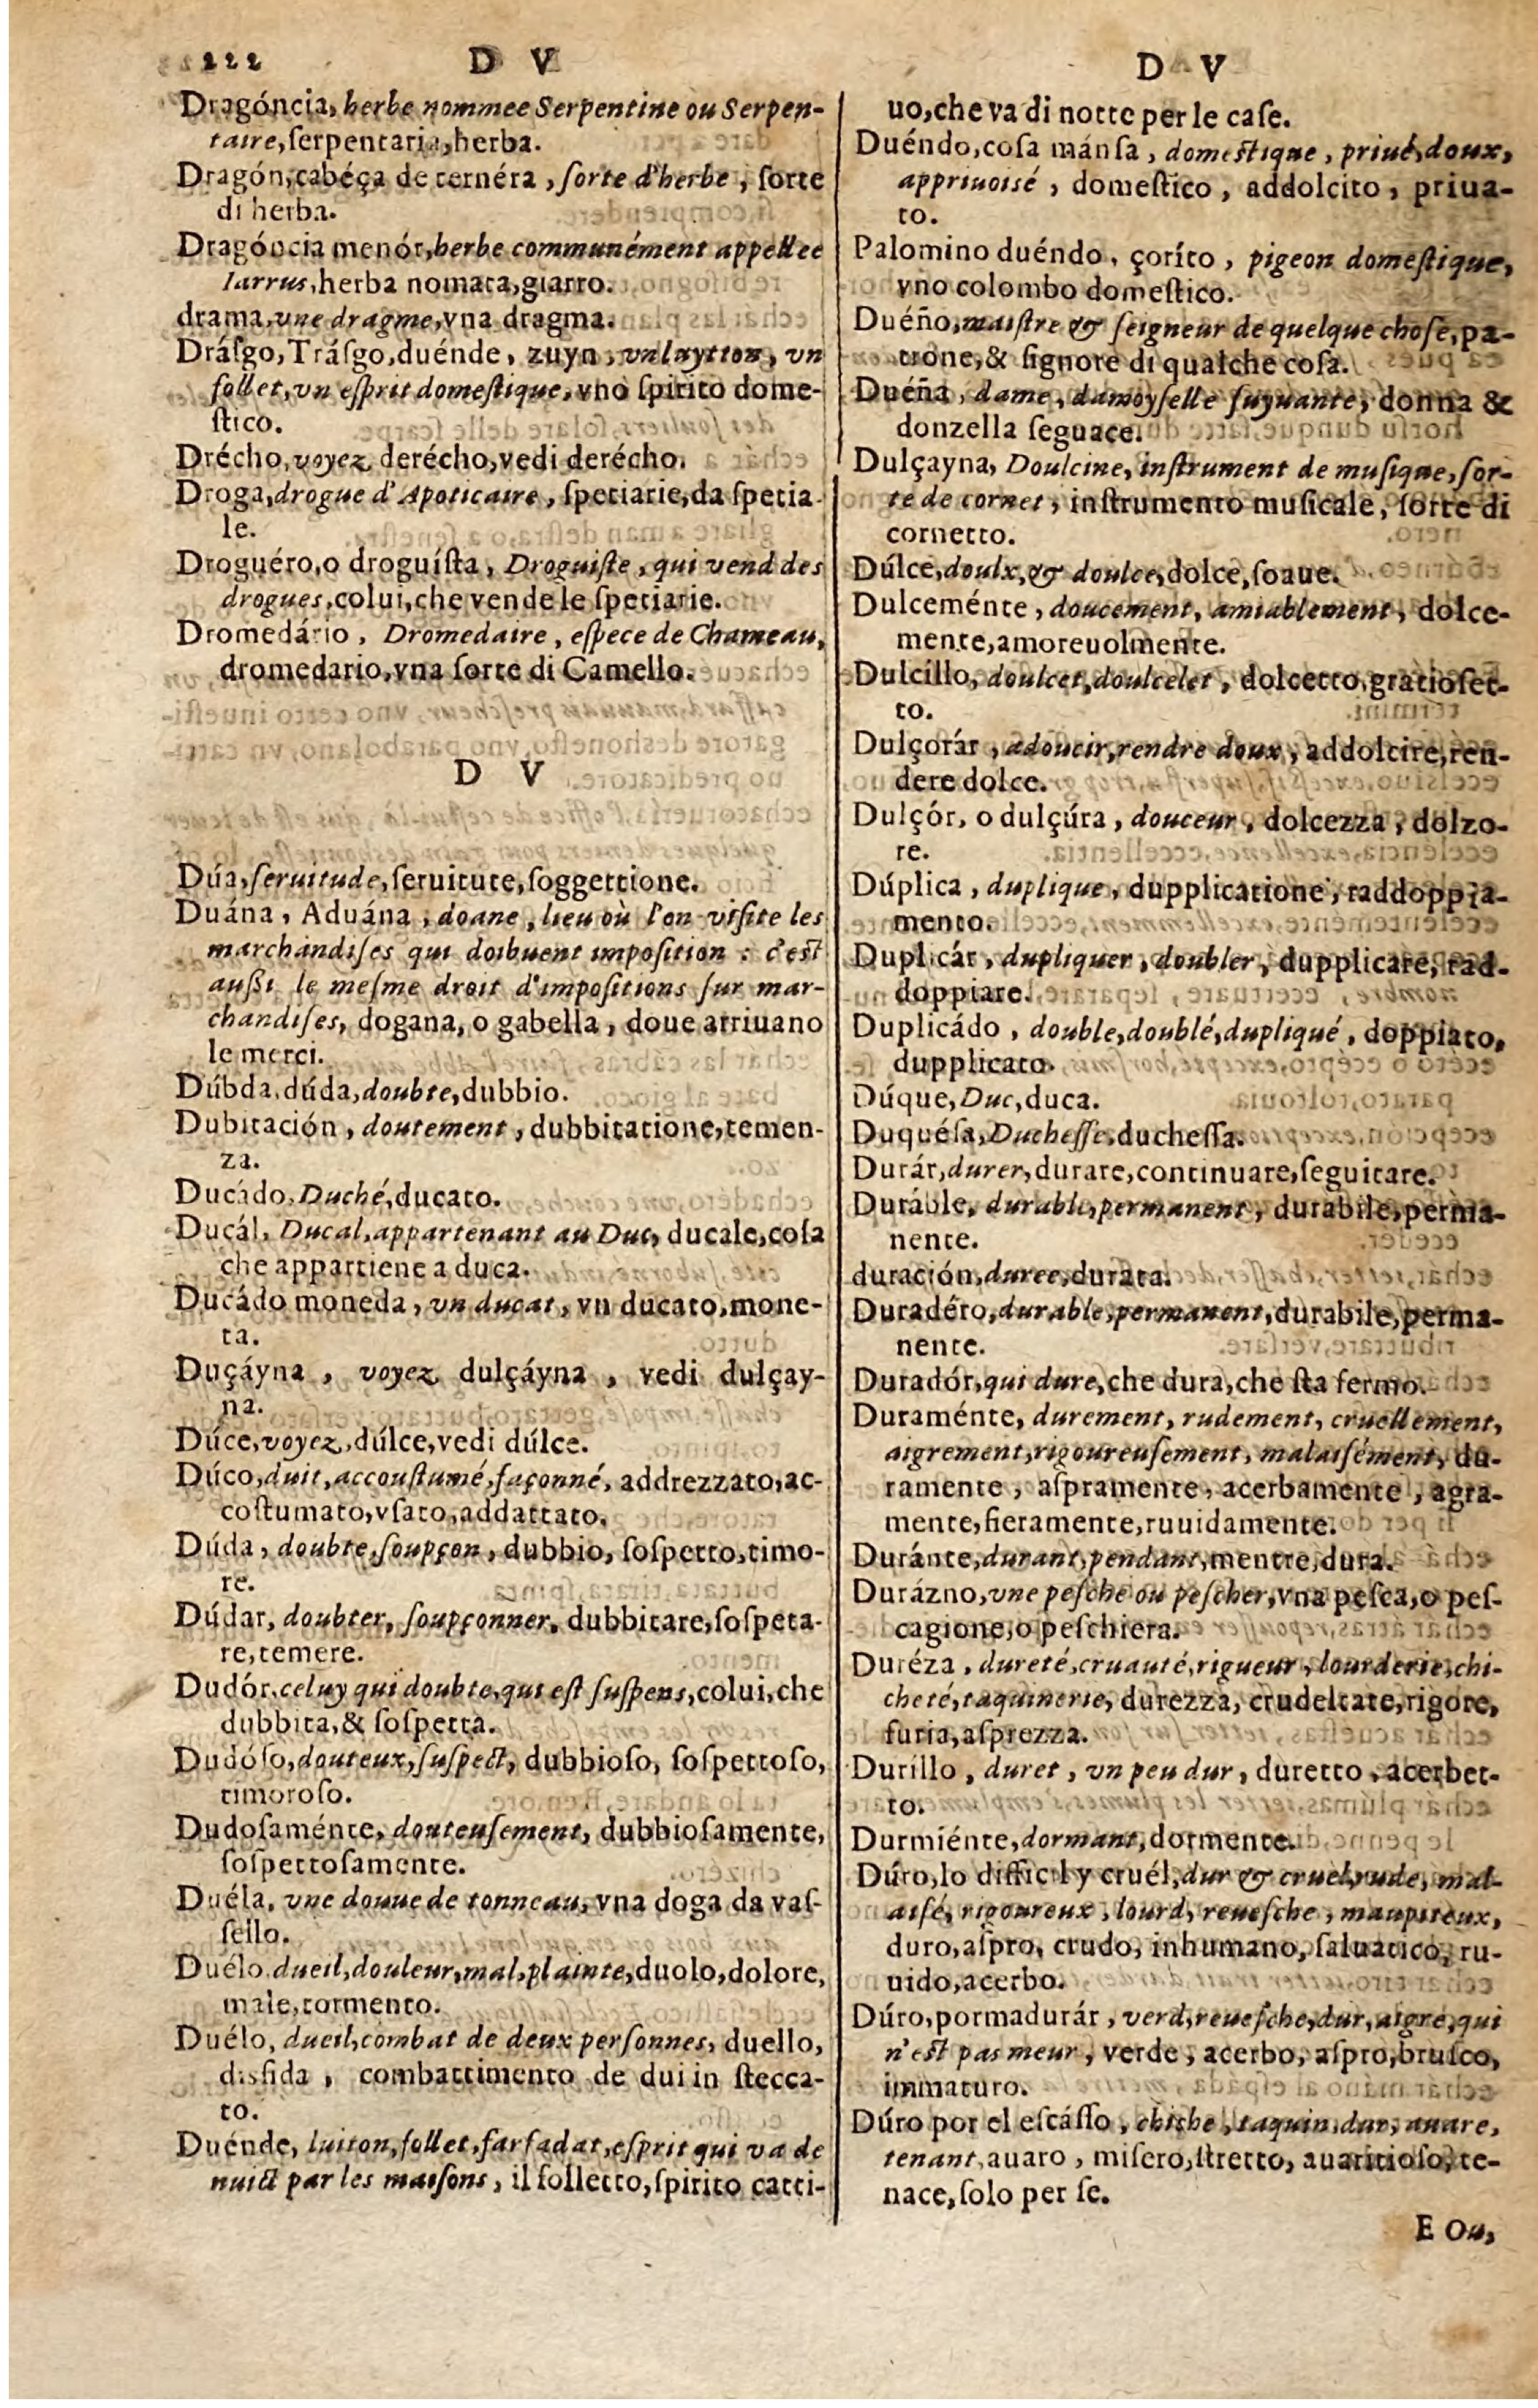 222
D V
Dragóncia, herbe nommee Serpentine ou Serpen-
taire, ſerpentaria, herba.
Dragón, cabéça de ternéra, ſorte d'herbe, ſorte
di herba.
Dragóncia menór, herbe communément appellee
Iarrus, herba nomata, giarro.
drama, vne dragme, vna dragma.
Dráſgo, Tráſgo, duénde, zuyn, vn luytton, vn
follet, vn eſprit domeſtique, vno ſpirito dome-
ſtico.
Drécho, voyez derécho, vedi derécho.
Droga, drogue d'Apoticaire, ſpetiarie, da ſpetia-
le.
Droguéro, o droguíſta, Droguiſte, qui vend des
drogues, colui, che vende le ſpetiarie.
Dromedário, Dromedaire, eſpece de Chameau,
dromedario, vna ſorte di Camello.
D V
Dúa, ſeruitude, ſeruitute, ſoggettione.
Duána, Aduána, doane, lieu où l'on viſite les
marchandiſes qui doibuent impoſition : c'eſt
außi le meſme droit d'impoſitions ſur mar-
chandiſes, dogana, o gabella, doue arriuano
le merci.
Dúbda, dúda, doubte, dubbio.
Dubitación, doutement, dubbitatione, temen-
za.
Ducádo, Duché, ducato.
Ducál, Ducal, appartenant au Duc, ducale, coſa
che appartiene a duca.
Ducádo moneda, vn ducat, vn ducato, mone-
ta.
Duçáyna, voyez dulçáyna, vedi dulçay-
na.
Dúce, voyez, dúlce, vedi dúlce.
Dúco, duit, accouſtumé, façonné, addrezzato, ac-
coſtumato, vſato, addattato.
Dúda, doubte, ſoupçon, dubbio, ſoſpetto, timo-
re.
Dúdar, doubter, ſoupçonner, dubbitare, ſoſpeta-
re, temere.
Dudór, celuy qui doubte, qui eſt ſuſpens, colui, che
dubbita, & ſoſpetta.
Dudóſo, douteux, ſuſpect, dubbioſo, ſoſpettoſo,
timoroſo.
Dudoſaménte, douteuſement, dubbioſamente,
ſoſpettoſamente.
Duéla, vne douue de tonneau, vna doga da vaſ-
ſello.
Duélo, dueil, douleur, mal, plainte, duolo, dolore,
male, tormento.
Duélo, dueil, combat de deux perſonnes, duello,
disfida, combattimento de dui in ſtecca-
to.
Duénde, luiton, follet, farfadat, eſprit qui va de
nuict par les maiſons, il folletto, ſpirito catti-
D V
uo, che va di notte per le caſe.
Duéndo, coſa mánſa, domeſtique, priué, doux,
appriuoisé, domeſtico, addolcito, priua-
to.
Palomino duéndo, çoríto, pigeon domeſtique,
vno colombo domeſtico.
Duéño, maiſtre & ſeigneur de quelque choſe, pa-
trone, & ſignore di qualche coſa.
Duéña, dame, damoyſelle ſuyuante, donna &
donzella ſeguace.
Dulçayna, Doulcine, inſtrument de muſique, ſor-
te de cornet, inſtrumento muſicale, ſorte di
cornetto.
Dúlce, doulx, & doulce, dolce, ſoaue.
Dulceménte, doucement, amiablement, dolce-
mente, amoreuolmente.
Dulcíllo, doulcet, doulcelet, dolcetto, gratioſet-
to.
Dulçorár, adoucir, rendre doux, addolcire, ren-
dere dolce.
Dulçór, o dulçúra, douceur, dolcezza, dolzo-
re.
Dúplica, duplique, dupplicatione, raddoppia-
mento.
Duplicár, dupliquer, doubler, dupplicare, rad-
doppiare.
Duplicádo, double, doublé, dupliqué, doppiato,
dupplicato.
Dúque, Duc, duca.
Duquéſa, Ducheſſe, ducheſſa.
Durár, durer, durare, continuare, ſeguitare.
Duráble, durable, permanent, durabile, perma-
nente.
duración, duree, durata.
Duradéro, durable, permanent, durabile, perma-
nente.
Duradór, qui dure, che dura, che ſta fermo.
Duraménte, durement, rudement, cruellement,
aigrement, rigoureuſement, malaiſément, du-
ramente, aſpramente, acerbamente, agra-
mente, fieramente, ruuidamente.
Duránte, durant, pendant, mentre, dura.
Durázno, vne peſche ou peſcher, vna peſca, o peſ-
cagione, o peſchiera.
Duréza, dureté, cruauté, rigueur, lourderie, chi-
cheté, taquinerie, durezza, crudeltate, rigore,
furia, aſprezza.
Durillo, duret, vn peu dur, duretto, acerbet-
to.
Durmiénte, dormant, dormente.
Dúro, lo difficil y cruél, dur & cruel, rude, mal-
aisé, rigoureux, lourd, reueſche, maupiteux,
duro, aſpro, crudo, inhumano, ſaluatico, ru-
uido, acerbo.
Dúro, pormadurár, verd, reueſche, dur, aigre, qui
n'eſt pas meur, verde, acerbo, aſpro, bruſco,
immaturo.
Dúro por el eſcáſſo, chiche, taquin, dur, auare,
tenant, auaro, miſero, ſtretto, auaritioſo, te-
nace, ſolo per ſe.
E Ou,